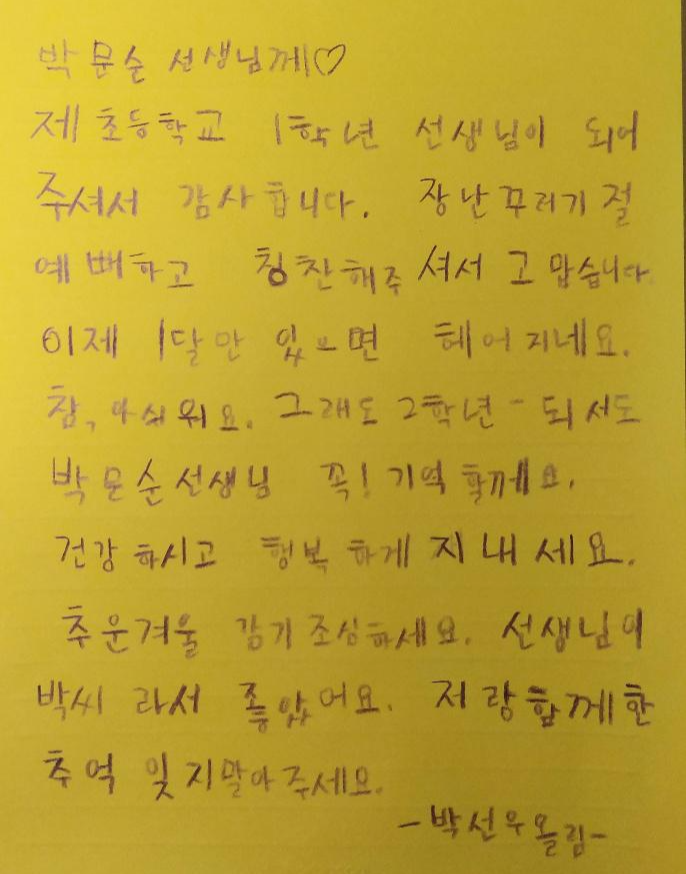 박문순 선생님께♡
제 초등학교 1학년 선생님이 되어
주셔서 감사합니다. 장난꾸러기 절
예뻐하고 칭찬해주셔서 고맙습니다.
이제 1달만 있으면 헤어지네요.
참, 아쉬워요. 그래도 2학년 되서도
박문순선생님 꼭! 기억할께요.
건강하시고 행복하게 지내세요.
추운겨울 감기조심하세요. 선생님이
박씨 라서 좋았어요. 저랑함께한
추억 잊지말아주세요.
-박선우올림-